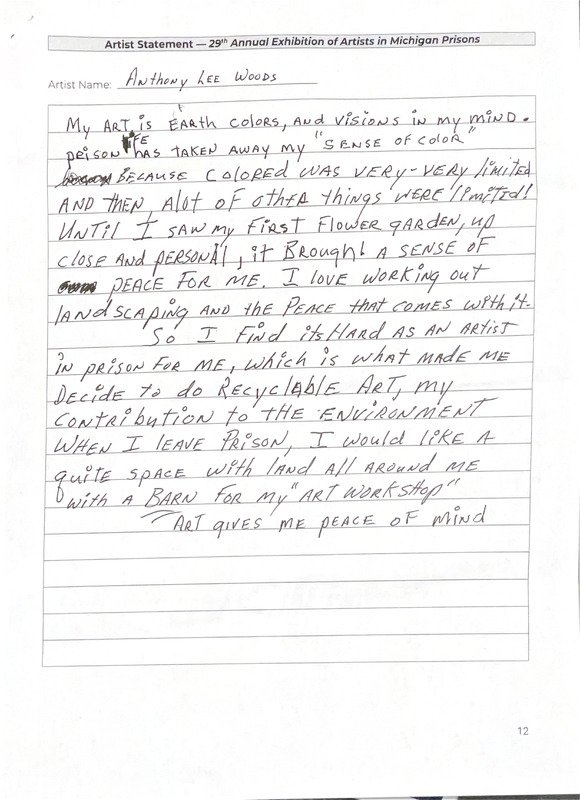 Artist Statement — 29th Annual Exhibition of Artists in Michigan Prisons
Artist Name: Anthony Lee Woods
My ART is EARTH COLORS, AND VISIONS IN MY MIND.
PRISON LIFE HAS TAKEN AWAY MY "SENSE OF COLOR"
BECAUSE COLORED WAS VERY-VERY limitED
AND THEN, Alot OF OTHER THINGS WERE limitED!
UNTIL I SAW MY FIRST FLOWER GARDEN, UP
CLOSE AND PERSONAL, it BROUGHT A SENSE OF
PEACE FOR ME. I LOVE WORKING OUT
lANDSCAPING AND the PEACE that COMES with it.
So I FiNd its HARD AS AN ARTIST
IN PRISON FOR ME, which is WHAT MADE ME
DECIDE to do RECYCLABLE ART, MY
CONTRIBUTION to THE ENVIRONMENT
WHEN I LEAVE PRISON, I WOULD LIKE A
QUITE SPACE with lAND All AROUND ME
with A BARN FOR MY "ART WORKSHOP"
ART GIVES ME PEACE OF MIND
12